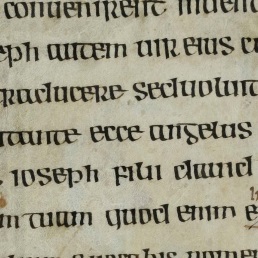 convenirent invent
eph autem vir eius cu
raducere sed voluit
tante ecce angelus
ioseph fili david
m tuam quod enim e